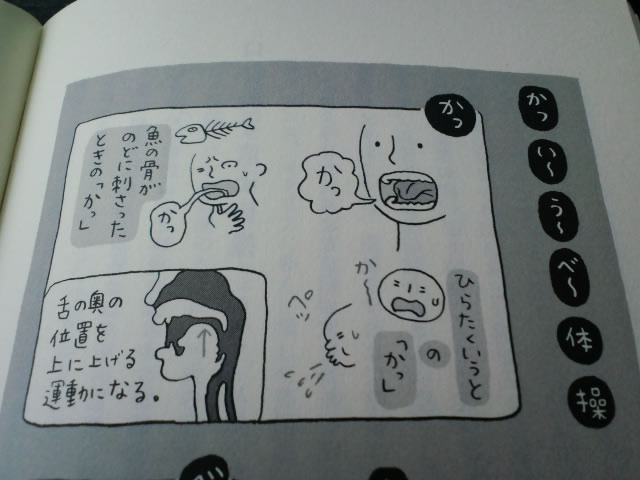 かっ
い〜
う〜
べ〜
体
操
かっ
かっ
魚の骨が
のどに刺さった
ときの「かっ」
かっ
ひらたくいうと
の
「かっ」
か〜
ペッ
舌の奥の
位置を
上に上げる
運動になる。